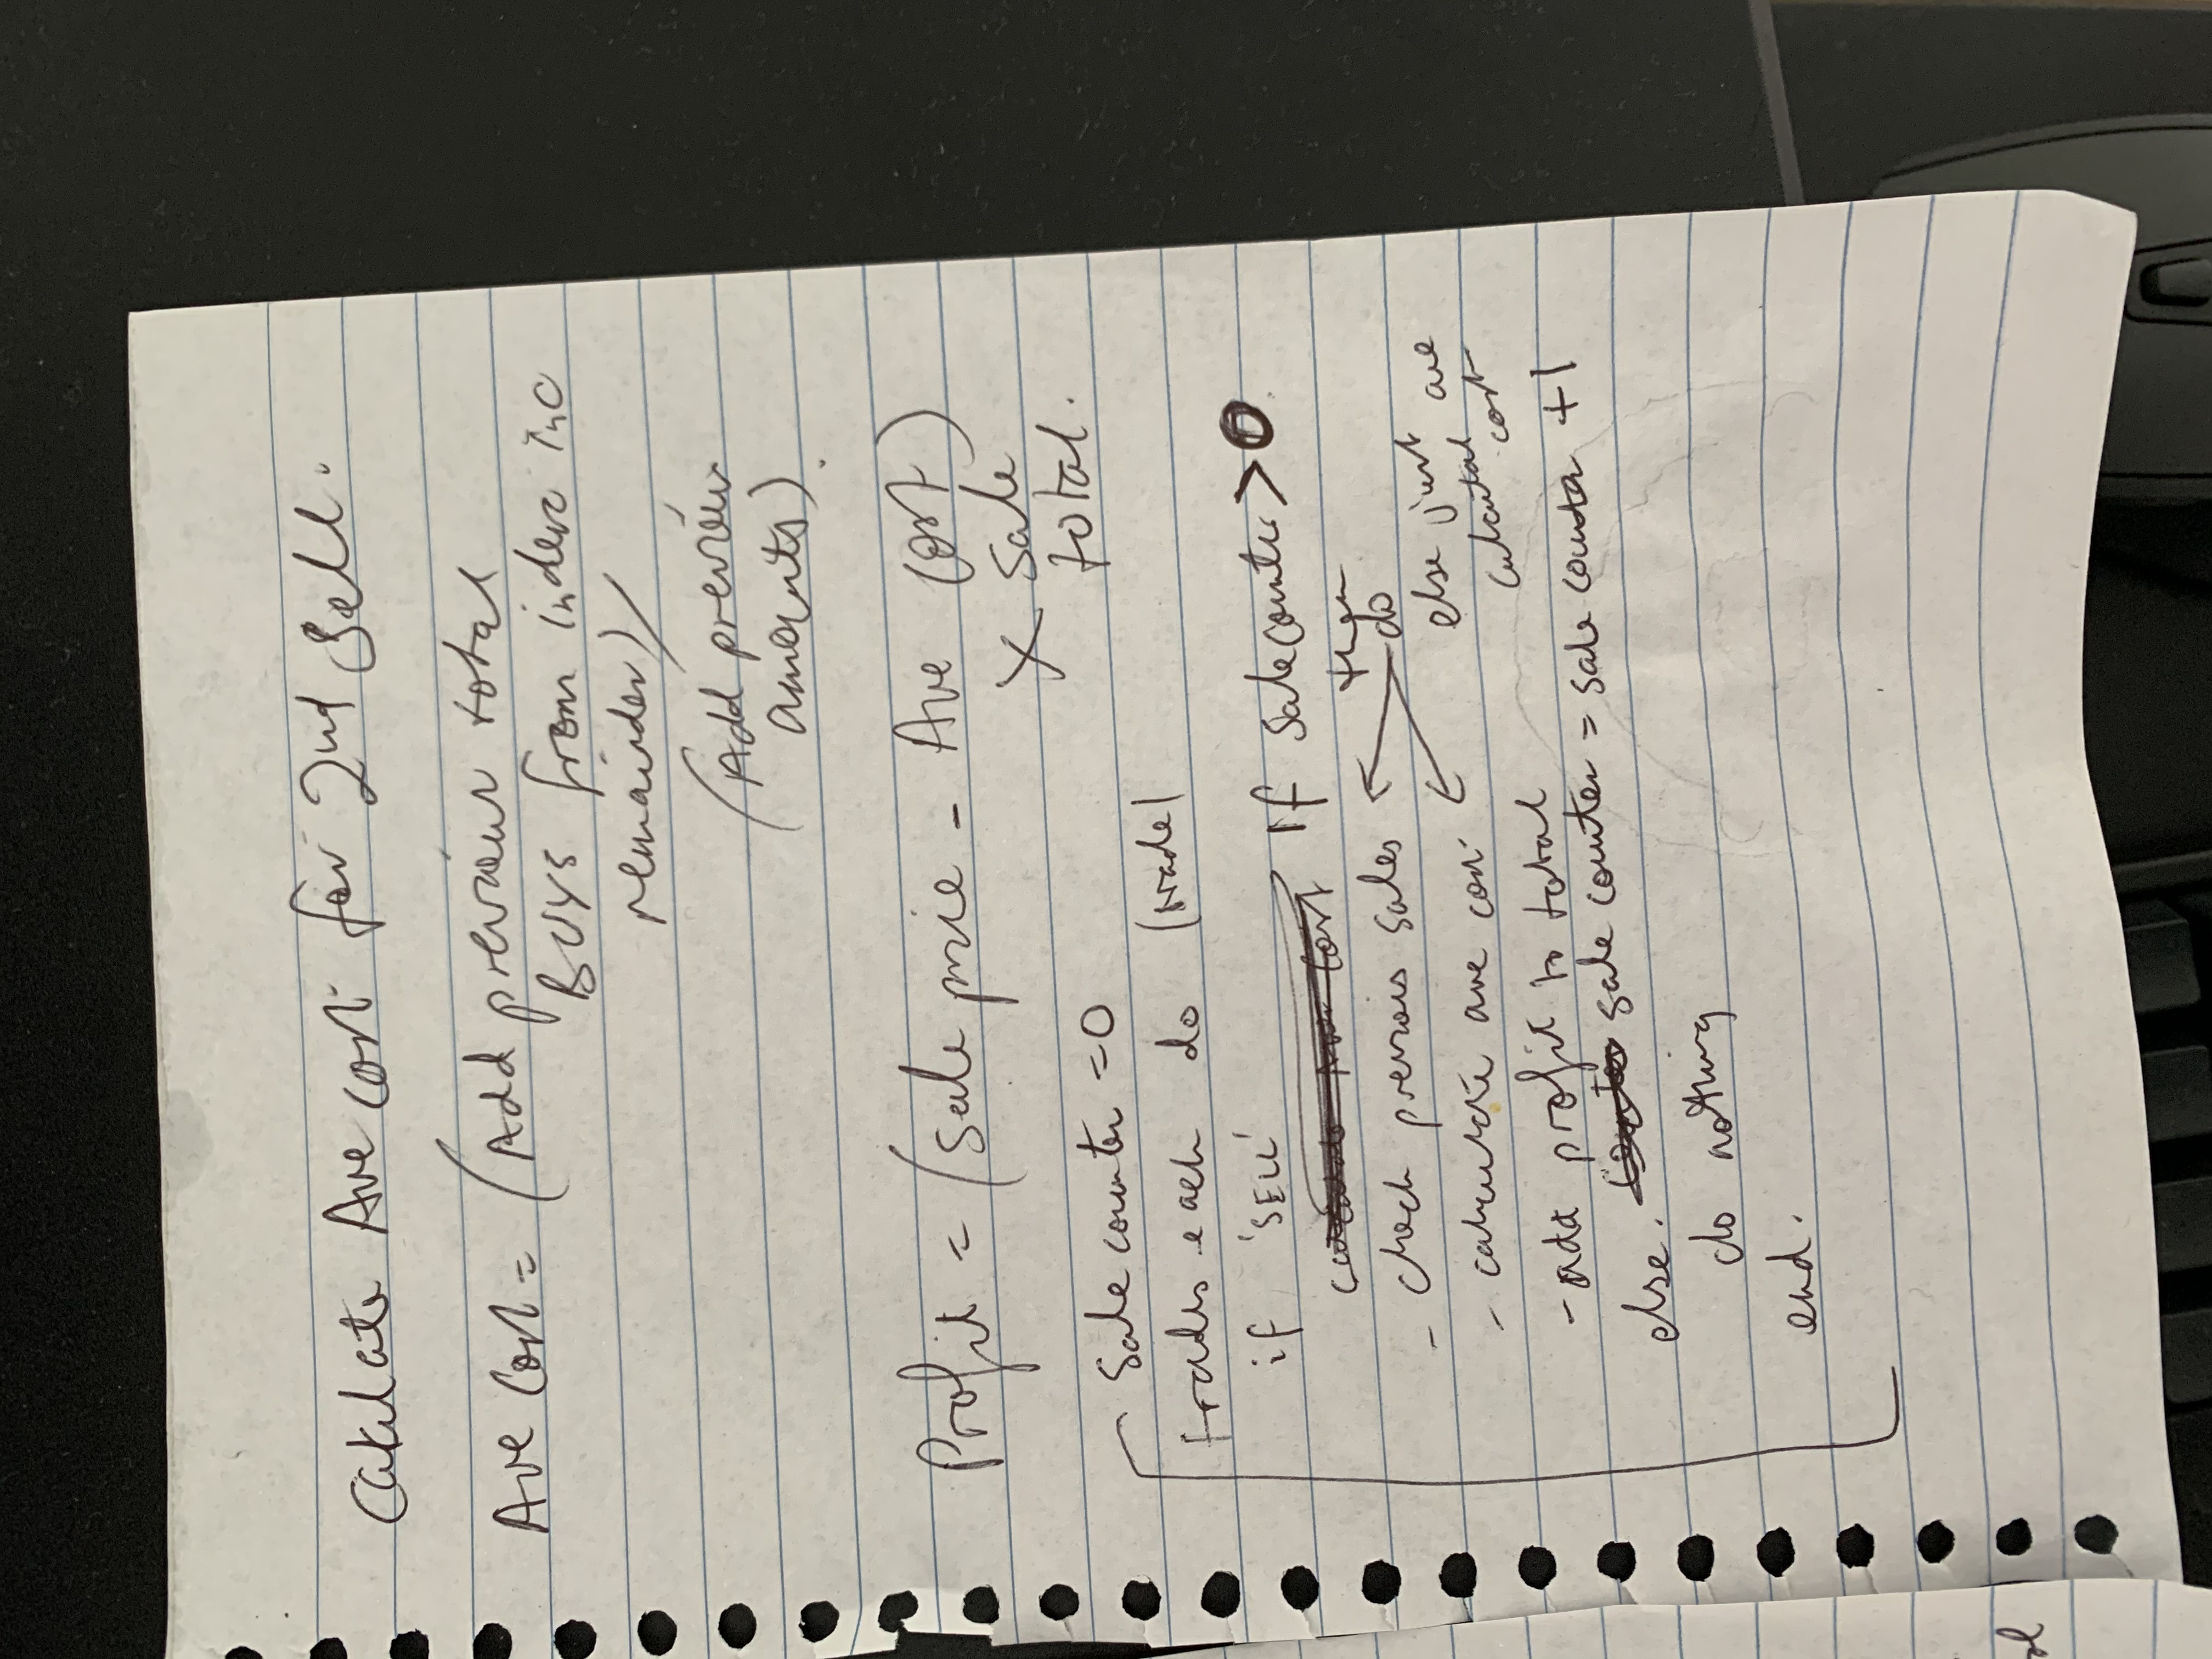 Calculate Ave cost for 2nd Sell.
Ave Cost = (Add previous total
BUYS from index inc
remainder) /
(Add previous
amounts).
Profit = (Sale price - Ave Cost)
X Sale
total.
Sale counter = 0
trades each do |trade|
if 'SELL'
calculate Ave Cost if Sale counter > 0
then
- check previous sales do
else just
- calculate ave cost calculate ave
cost
- add profit to total
counter sale counter = sale counter + 1
else.
do nothing
end.